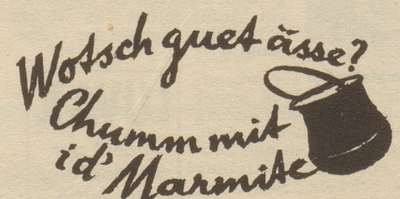 Wotsch guet ässe?
Chumm mit
id' Marmite